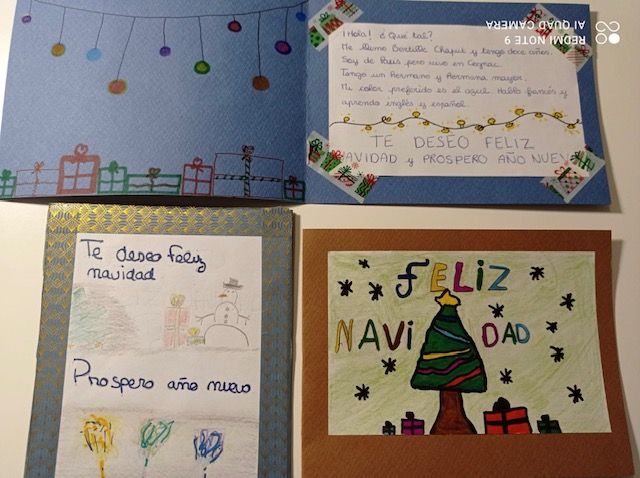 ¡Hola! ¿Qué tal?
Me llamo Bertille Chaput y tengo doce años.
Soy de París pero vivo en Cognac.
Tengo un hermano y hermana mayor.
Mi color preferido es el azul. Hablo francés y
aprendo inglés y español.
TE DESEO FELIZ
NAVIDAD y PROSPERO AÑO NUEVO
Te deseo feliz
navidad
Prospero año nuevo
FELIZ
NAVIDAD
REDMI NOTE 9
AI QUAD CAMERA